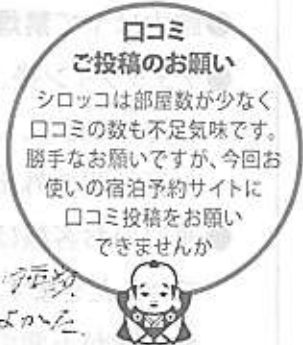 口コミ
ご投稿のお願い
シロッコは部屋数が少なく
口コミの数も不足気味です。
勝手なお願いですが、今回お
使いの宿泊予約サイトに
口コミ投稿をお願い
できませんか
よかった.